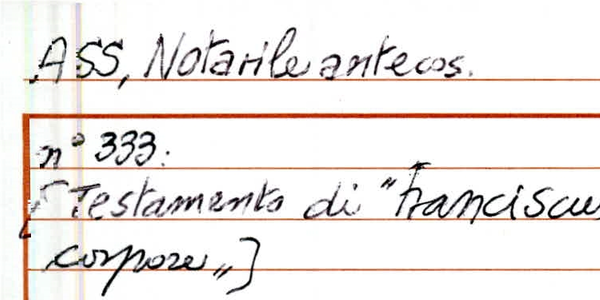 ASS, Notarile antecos.
n° 333:
[Testamento di "Franciscus
corpore„]